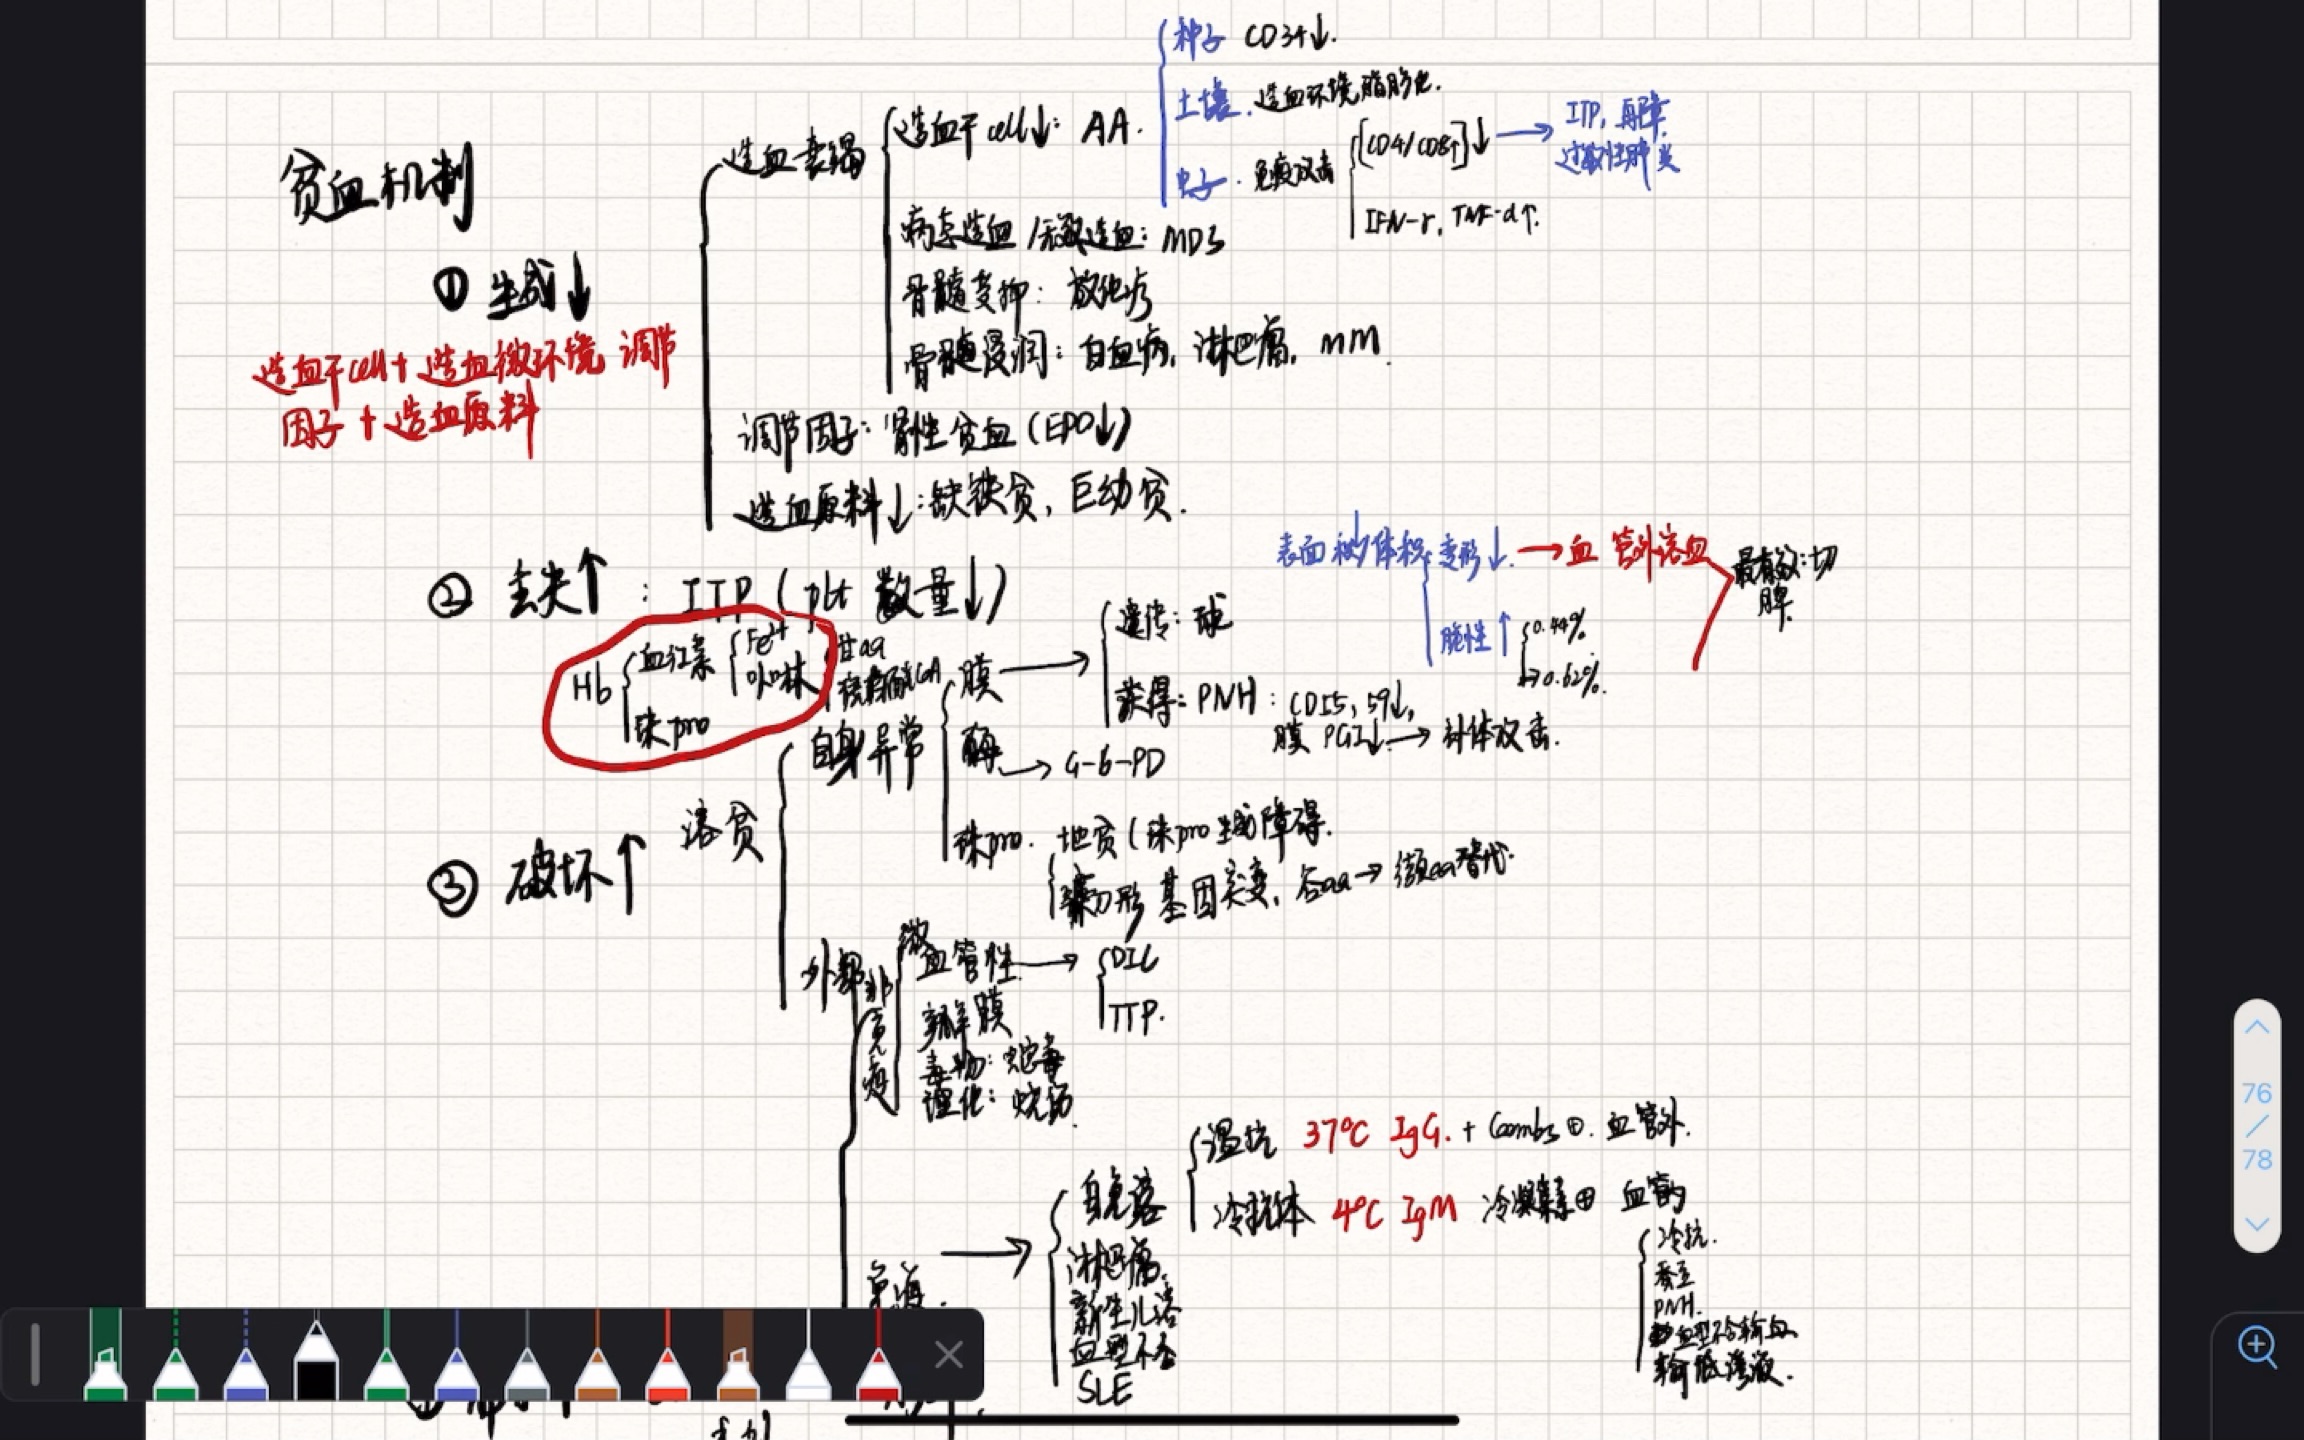 种子 CD34↓.
土壤. 造血环境脂肪化.
虫子. 免疫攻击 [CD4/CD8↑]↓ → ITP, 再障,
过敏性
IFN-r, TNF-α↑.
贫血机制
造血衰竭
造血干cell↓: AA.
病态造血/无效造血: MDS
骨髓受抑: 放化疗
骨髓浸润: 白血病, 淋巴瘤, MM.
① 生成↓
造血干cell + 造血微环境 调节
因子 + 造血原料
调节因子: 肾性贫血 (EPO↓)
造血原料↓: 缺铁贫, 巨幼贫.
② 丢失↑: ITP (plt 数量↓)
表面积/体积↓ 变形↓. → 血管外溶血
最有效: 切
脾.
脆性↑ 0.44%
→0.62%.
Hb 血红素 Fe2+
卟啉 甘aa
CoA
珠pro
③ 破坏↑
溶贫
自身异常
膜 → 遗传: 球
获得: PNH: CD55, 59↓,
膜 PGI↓ → 补体攻击.
酶 → G-6-PD
珠pro. 地贫 (珠pro生成障碍.
镰刀形 基因突变, 谷aa → 缬aa替代.
外部
非免疫
微血管性 → DIC
TTP.
瓣膜
毒物: 蛇毒
理化: 烧伤
免疫. →
自免溶
温抗 37°C IgG. + Coombs ⊕. 血管外.
冷抗体 4°C IgM 冷凝集素⊕ 血管内
冷抗.
蚕豆
PNH.
血型不合输血
输低渗液.
淋巴瘤.
新生儿溶
血型不合
SLE
76
/
78